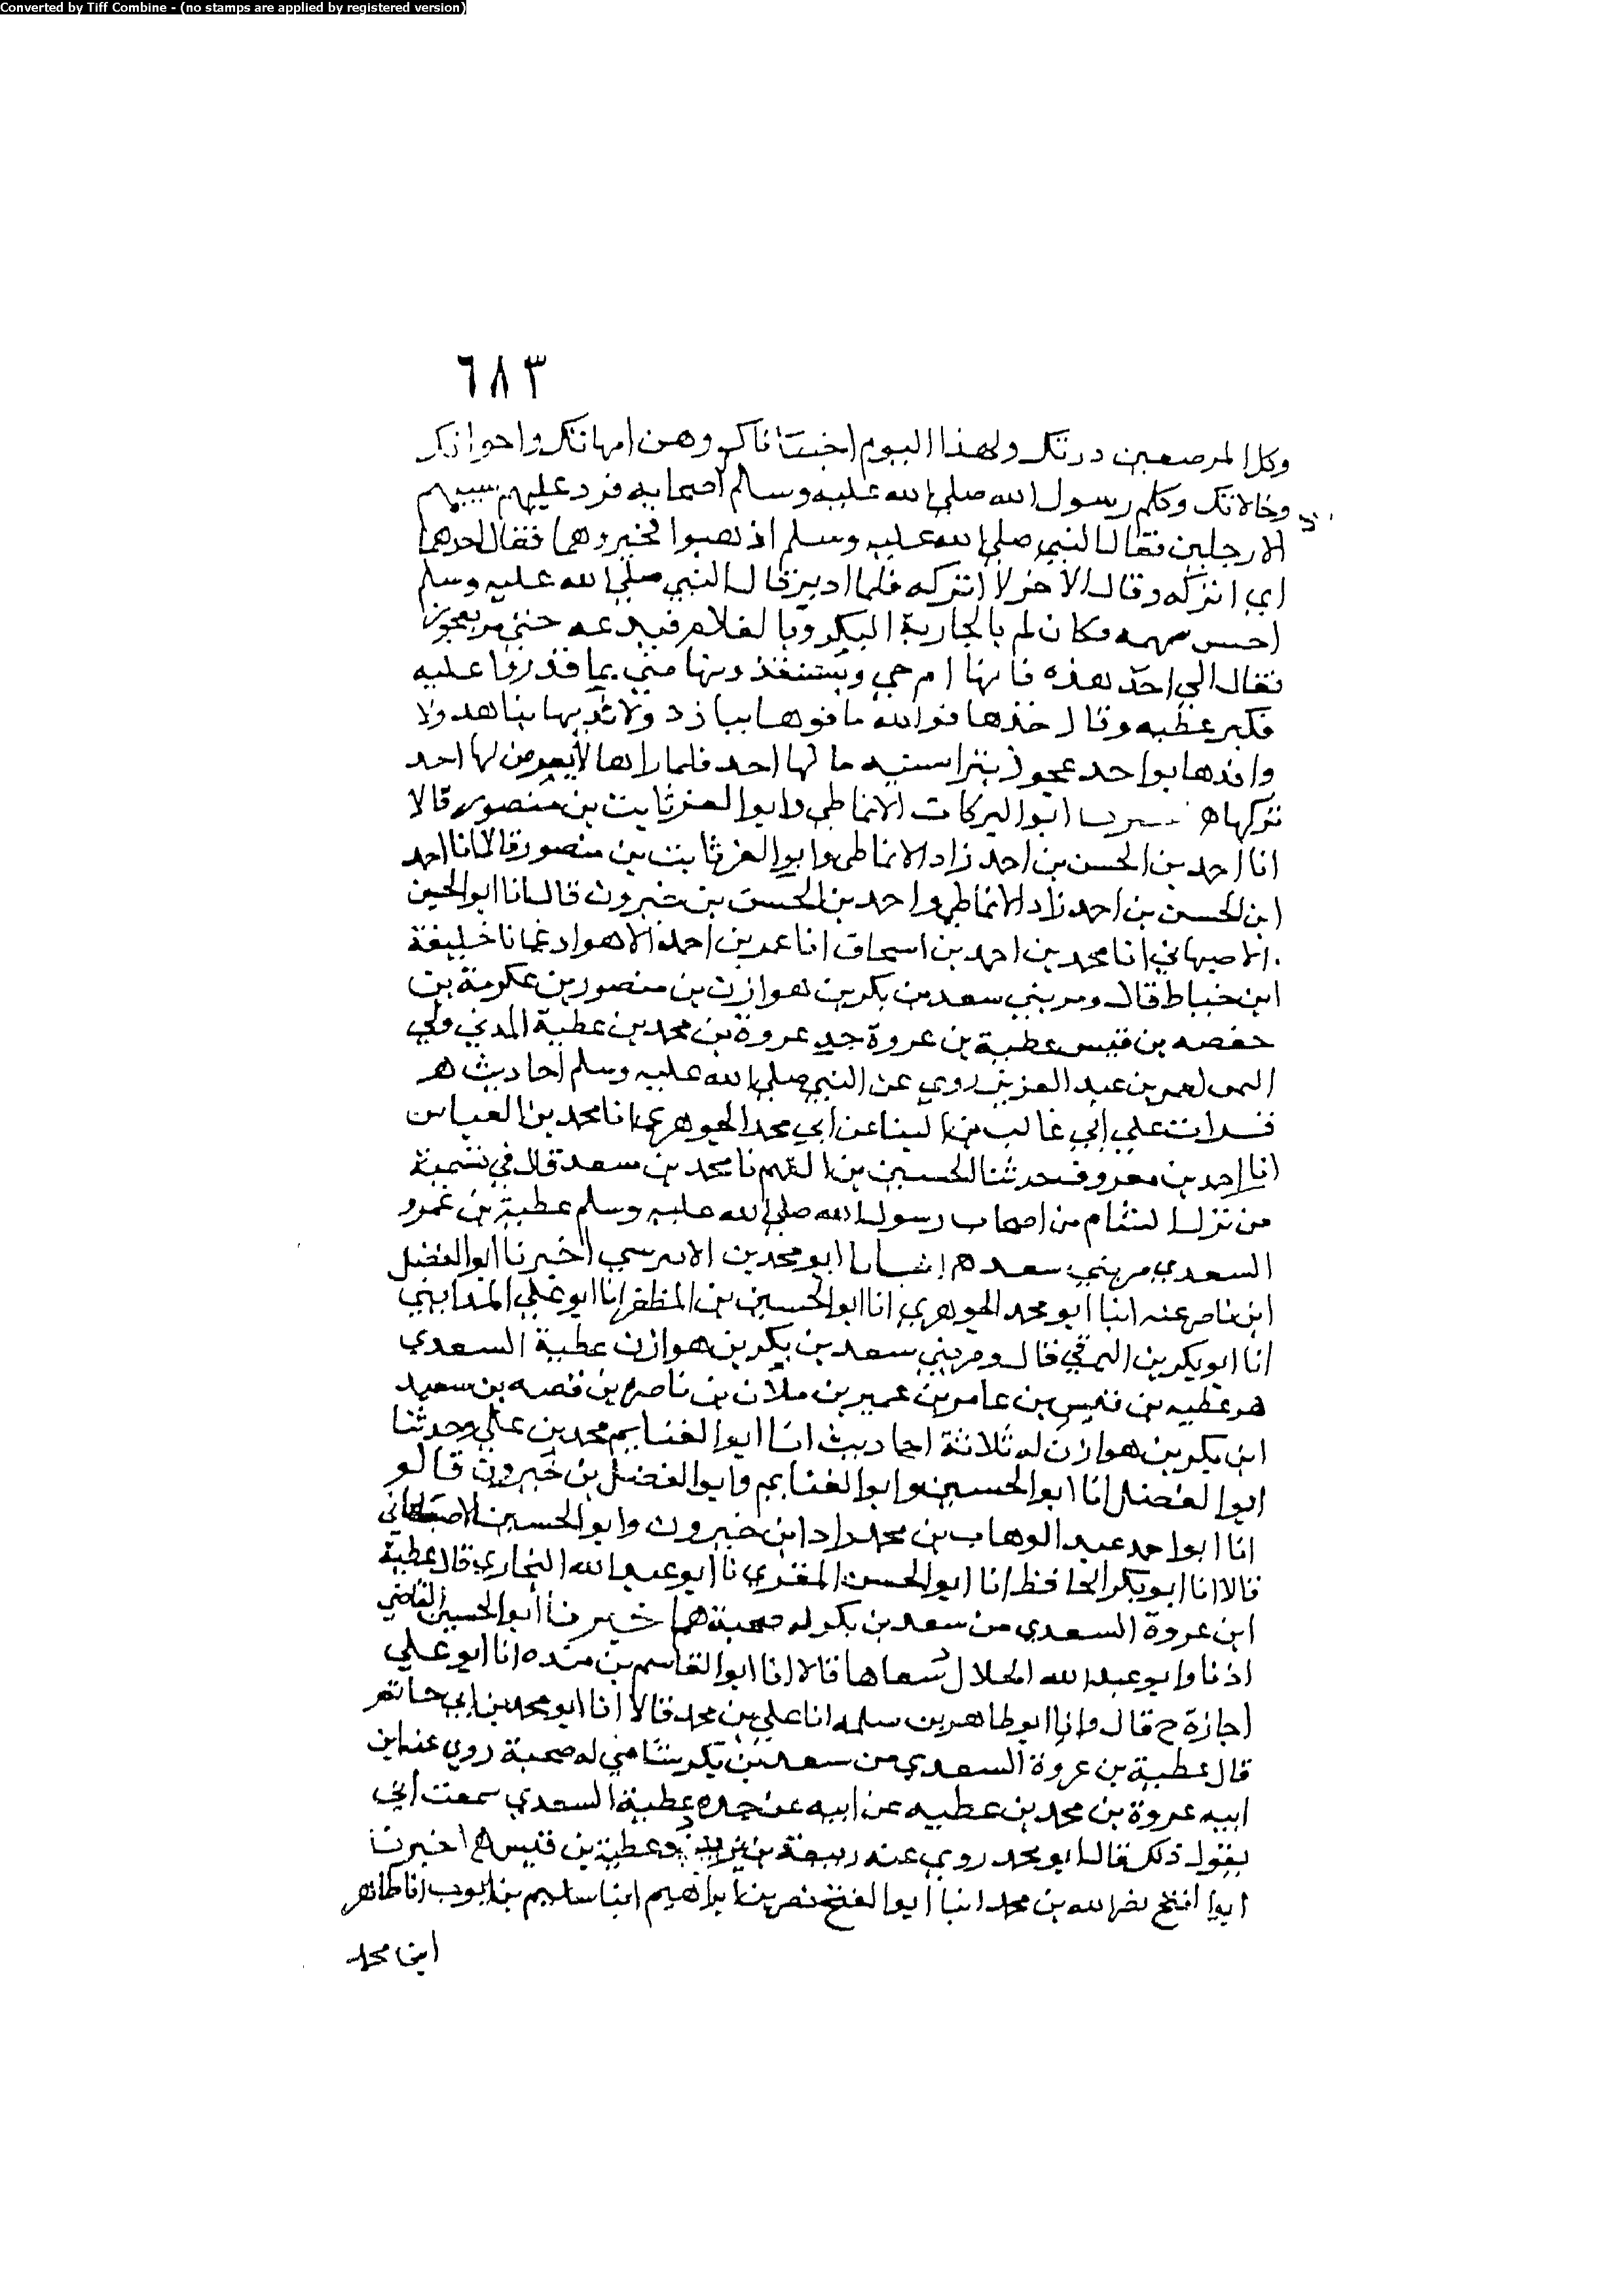 Converted by Tiff Combine - (no stamps are applied by registered version)
٦٨٣
وكل المرضعين درتك ولهذا اليوم اختبأناك وهن امهاتك واخواتك
وخالاتك وكلم رسول الله صلى الله عليه وسلم اصحابه فرد عليهم سبيهم
الا رجلين فقال النبي صلى الله عليه وسلم اذهبوا فخيروهما فقال احدهما
اي اتركه وقال الاخر لا اتركه فلما ادبر قال النبي صلى الله عليه وسلم
اخس سهمه فكان لم بالجارية البكر وبالغلام فيدعه حتى مر بعجوز
فقال الي احد هذه فانها ام حي ويستنقذونها مني بما قدروا عليه
فكبر عطيه وقال خذها فوالله ما فوها ببارد ولا ثديها بناهد ولا
وافدها بواحد عجوز بترا سنيه ما لها احد فلما راها لا يعرض لها احد
تركها ه ابوا البركات الانماطي وابوا العز ثابت بن منصور قالا
انا احمد بن الحسن بن احمد زاد الانماطي وابوا العز ثابت بن منصور قالا انا احمد
ابن الحسن بن احمد زاد الانماطي واحمد بن الحسن بن خيرون قالا انا ابو الحسين
الاصبهاني انا محمد بن احمد بن اسحاق انا عمر بن احمد الاهوازي انا خليفة
ابن خياط قال ومن بني سعد بن بكر بن هوازن بن منصور بن عكرمة بن
حفصه بن قيس عطية بن عروة جد عروة بن محمد بن عطية المدني ولي
اليمن لعمر بن عبد العزيز روي عن النبي صلى الله عليه وسلم احاديث ه
قرات علي ابي غالب بن البنا عن ابي محمد الجوهري انا محمد بن العباس
انا احمد بن معروف حدثنا الحسين بن الفهم نا محمد بن سعد قال في تسمية
من نزل الشام من اصحاب رسول الله صلى الله عليه وسلم عطية بن عمرو
السعدي من بني سعد ه انبانا ابو محمد بن الابنرسي اخبرنا ابوا الفضل
ابن ناصر عنه انبا ابو محمد الجوهري انا ابوا الحسين بن المظفر انا ابو علي المدايني
انا ابو بكر بن البرقي قال ومن بني سعد بن بكر بن هوازن عطية السعدي
هو عطيه بن قيس بن عامر بن عمير بن ملان بن ناصره بن قصيه بن سعيد
ابن بكر بن هوازن له ثلاثة احاديث انا ابوا الغنايم محمد بن علي وحدثنا
ابوا الفضل انا ابوا الحسين وابوا الغنايم وابوا الفضل بن خيرون قالو
انا ابوا حمد عبد الوهاب بن محمد زاد ابن خيرون وابوا الحسين الاصبهاني
قالا انا ابو بكر الحافظ انا ابوا الحسن المقري نا ابو عبد الله البخاري قال عطية
ابن عروة السعدي من سعد بن بكر له صحبة ه اخبرنا ابوا الحسين القاضي
اذنا وابو عبد الله الخلال شفاها قالا انا ابوا القاسم بن منده انا ابو علي
اجازة ح قال وانا ابو طاهر بن سلمه انا علي بن محمد قالا انا ابو محمد بن ابي حاتم
قال عطية بن عروة السعدي من سعد بن بكر شامي له صحبة روي عنه ابن
ابيه عروة بن محمد بن عطيه عن ابيه عن جده عطية السعدي سمعت ابي
يقول ذلك قال ابو محمد روي عنه ربيعة بن يزيد وعطية بن قيس ه اخبرنا
ابوا الفتح نصر الله بن محمد انبا ابوا الفتح نصر بن ابراهيم انبا سليم بن ايوب انا طاهر
ابن محمد